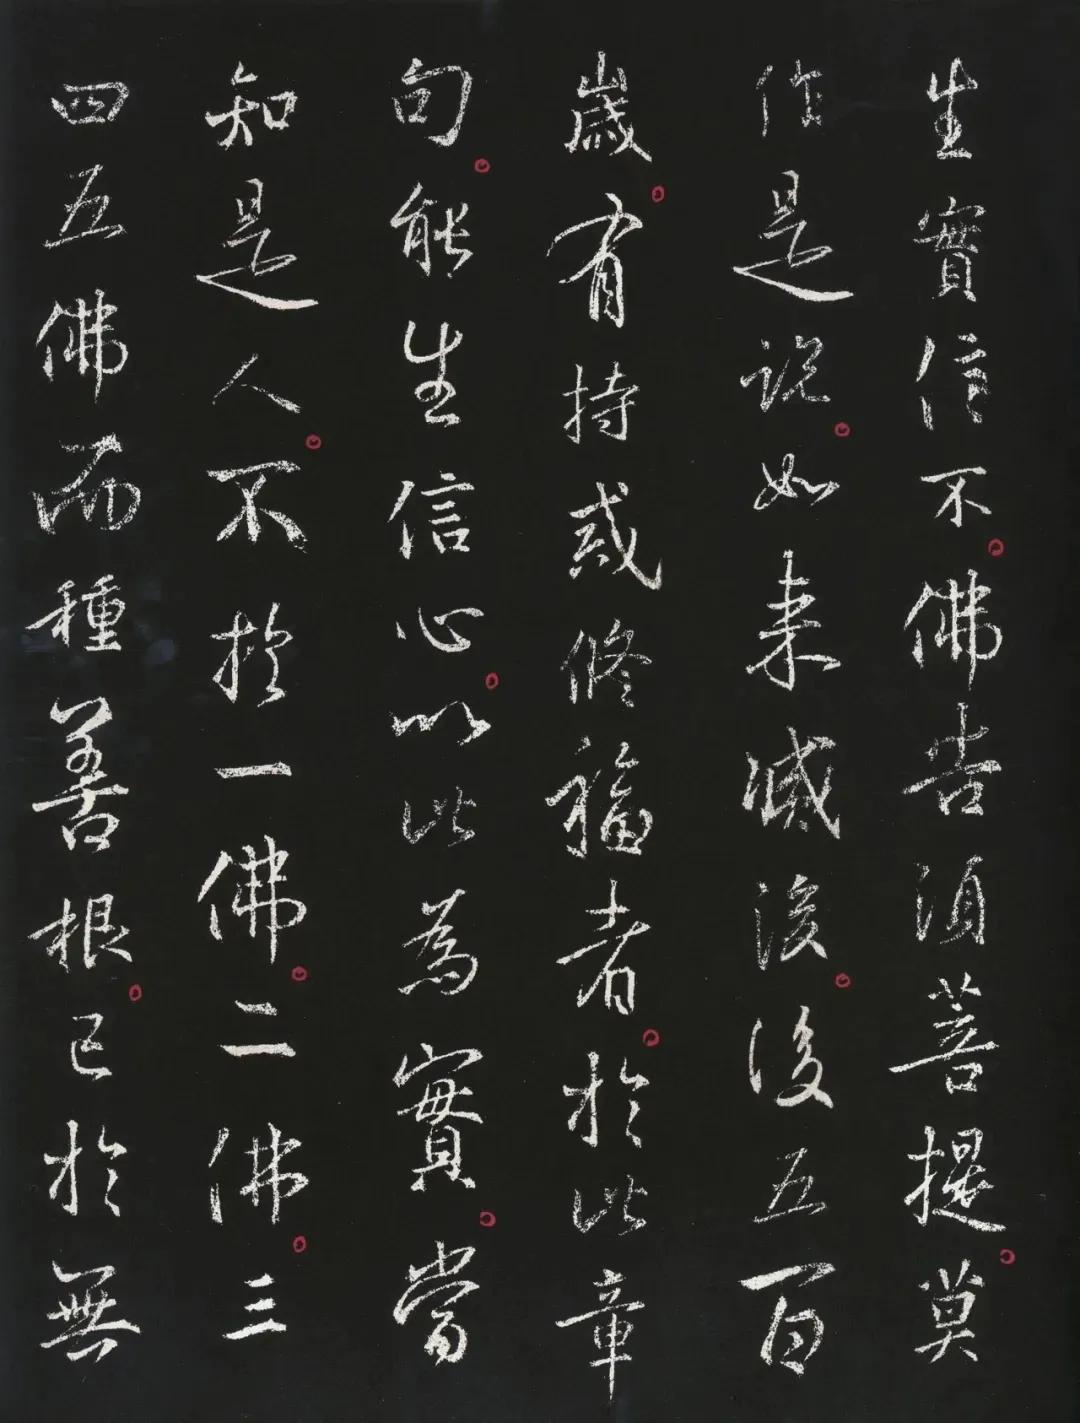 生實信不佛告須菩提莫
作是説如来滅後後五百
歲有持戒修福者於此章
句能生信心以此為實當
知是人不於一佛二佛三
四五佛而種善根已於無